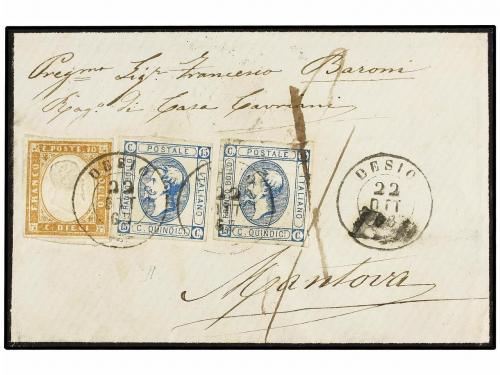 Pregmo Sigr Francesco Baroni
Ragre di Casa Cavriani
C. POSTE 10
FRANCO
C. DIECI
POSTALE
C 15
ITALIANO
C. QUINDICI
POSTALE
C 15
ITALIANO
C. QUINDICI
DESIO
22
DESIO
22
DESIO
22
OTT
Mantova